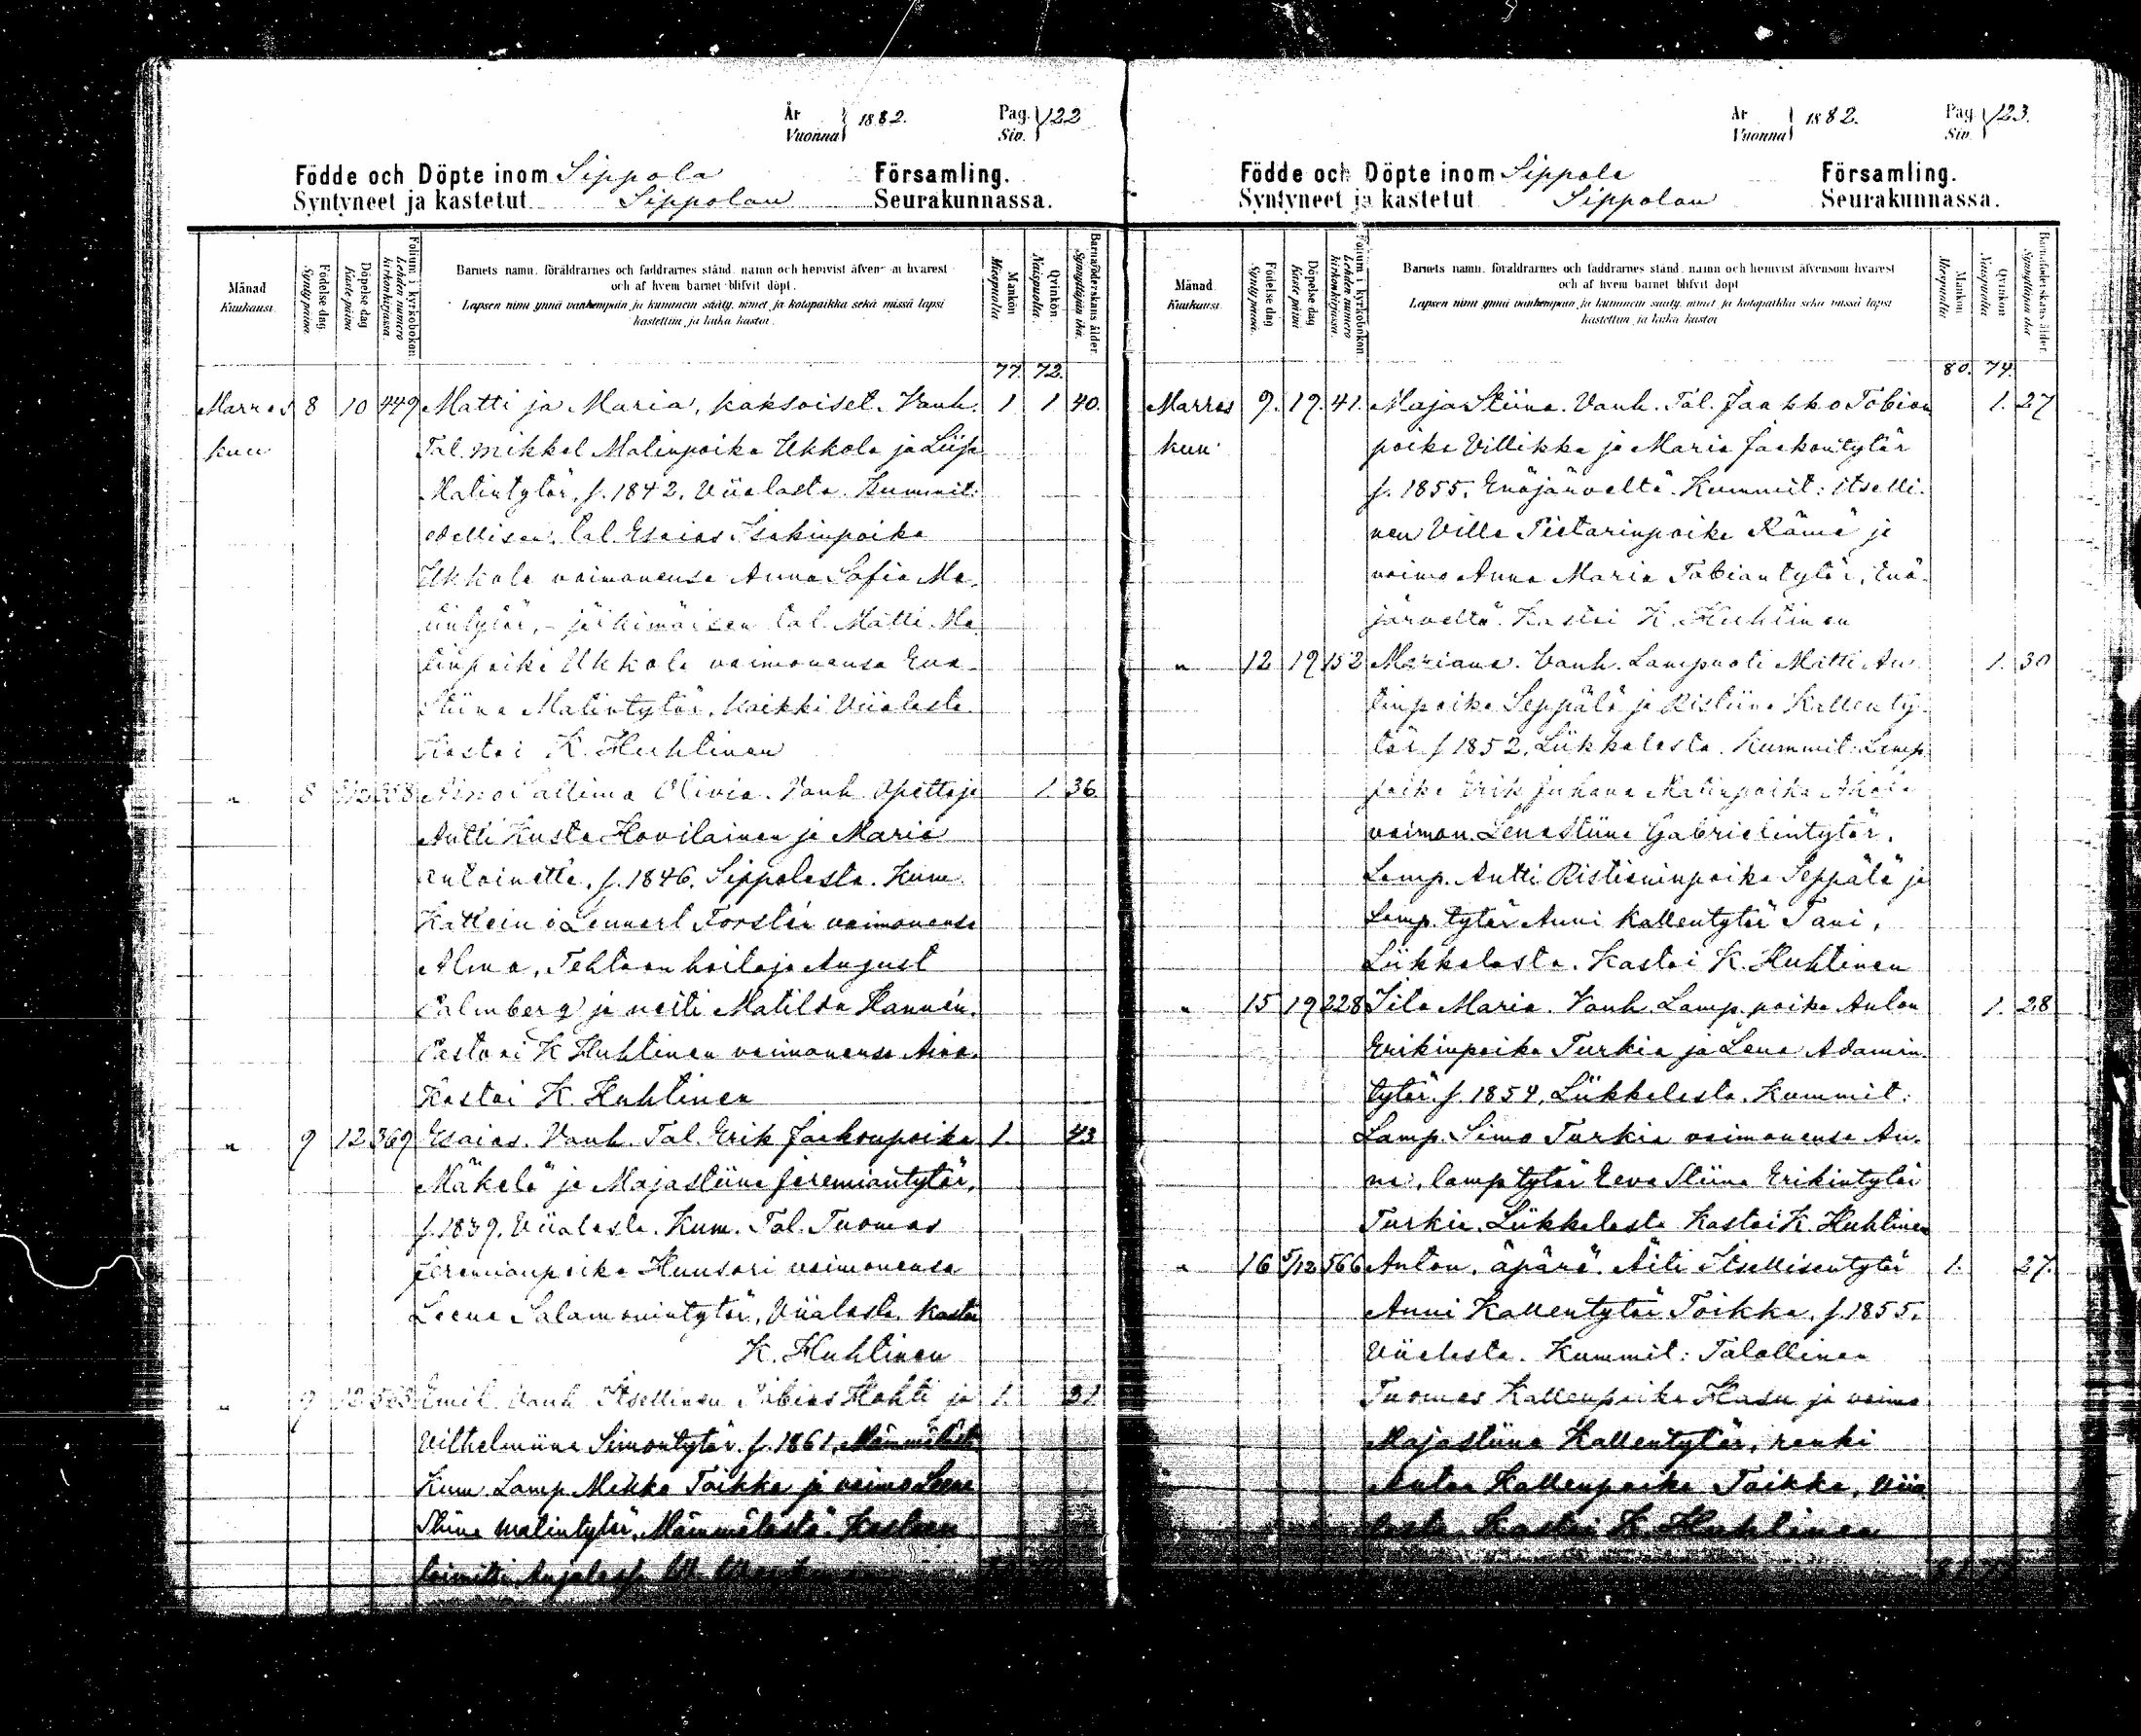 År
Vuonna 1882.
Pag.
Siv. 122
Födde och Döpte inom Sippola Församling.
Syntyneet ja kastetut Sippolan Seurakunnassa.
Månad
Kuukausi.
Födelse dag
Synty päivä.
Döpelse dag
Kaste päivä
Folium i kyrkoboken.
Lehden numero
kirkonkirjassa.
Barnets namn, föräldrarnes och faddrarnes stånd, namn och hemvist äfvensom hvarest
och af hvem barnet blifvit döpt.
Lapsen nimi ynnä vanhempain ja kummein sääty, nimet ja kotopaikka sekä missä lapsi
kastettiin ja kuka kastoi.
Mankön
Miespuolia
Qvinkön.
Naispuolia.
Barnaföderskans ålder.
Synnyttäjän ikä.
77. 72.
Marras 8 10 449 Matti ja Maria, kaksoiset. Vanh. 1 1 40.
kuu Tal. Mikkel Matinpoika Ukkola ja Liisa
Matintytär, s. 1842, Viialasta. Kummit:
edellisen, tal. Esaias Isakinpoika
Ukkola vaimonensa Anna Sofia Ma-
tintytär, - jälkimäisen tal. Matti Ma-
tinpoika Ukkola vaimonensa Eva
Stiina Matintytär, kaikki Viialasta.
Kastoi K. Huhtinen
" 8 Aino Olivia. Vanh. Opettaja 1. 36.
Antti Kusta Hovilainen ja Maria
Antoinette, s. 1846, Sippolasta. Kum.
Lennart Forstén vaimonensa
Alma, Tehtaan hoitaja August
Palmberg ja neiti Matilda Hannén.
Pastori K Huhtinen vaimonensa Aina.
Kastoi K. Huhtinen
" 9 12 369 Esaias. Vanh. Tal. Erik Jaakonpoika 1. 43
Mäkelä ja Majastiina Jeremiantytär,
s. 1839, Viialasta. Kum. Tal. Tuomas
Jeremianpoika Huusari vaimonensa
Leena Salamonintytär, Viialasta. Kastoi
K. Huhtinen
" 9 12 Emil. Vanh. Itsellinen Tobias Hahti ja 1. 21
Vilhelmiina Simontytär s. 1861, Mämmälästä
Kum. Lamp. Mikko Toikka ja vaimo Leena
Stiina Matintytär, Mämmälästä. Kasteen
toimitti Anjalassa
År
Vuonna 1882.
Pag.
Siv. 123.
Födde och Döpte inom Sippola Församling.
Syntyneet ja kastetut Sippolan Seurakunnassa.
Månad
Kuukausi.
Födelse dag
Synty päivä.
Döpelse dag
Kaste päivä
Folium i kyrkoboken.
Lehden numero
kirkonkirjassa.
Barnets namn, föräldrarnes och faddrarnes stånd, namn och hemvist äfvensom hvarest
och af hvem barnet blifvit döpt
Lapsen nimi ynnä vanhempain ja kummein sääty, nimet ja kotopaikka sekä missä lapsi
kastettiin ja kuka kastoi
Mankön.
Miespuolia
Qvinkön
Naispuolia
Barnaföderskans ålder.
Synnyttäjän ikä
80. 74.
Marras 9. 19. 41. Maja Stiina. Vanh. Tal. Jaakko Tobian 1. 27
kuu poika Villikka ja Maria Jaakontytär
s. 1855, Enäjärveltä. Kummit: itselli-
nen Ville Pietarinpoika Rämä ja
vaimo Anna Maria Tobiantytär, Enä-
järveltä. Kastoi K. Huhtinen
" 12 19 152 Mariana. Vanh. Lampuoti Matti An- 1. 30
tinpoika Seppälä ja Ristiina Kallenty-
tär s. 1852, Liikkalasta. Kummit: Lamp.
poika Erik Juhana Matinpoika Ahola
vaimon. Lenastiina Gabrielintytär,
Lamp. Antti Ristianinpoika Seppälä ja
Lamp. tytär Anni Kallentytär Tani,
Liikkalasta. Kastoi K. Huhtinen
" 15 19 228 Iita Maria. Vanh. Lamp. poika Anton 1. 28
Erikinpoika Turkia ja Lena Adamin-
tytär s. 1854, Liikkalasta. Kummit:
Lamp. Simo Turkia vaimonensa An-
ni, lamp tytär Eeva Stiina Erikintytär
Turkia Liikkalasta Kastoi K. Huhtinen
" 16 5/12 566 Anton, äpärä. Äiti Itsellisentytär 1. 27.
Anni Kallentytär Toikka, s. 1855.
Viialasta. Kummit: Talollinen
Tuomas Kallenpoika Hasu ja vaimo
Majastiina Kallentytär, renki
Anton Kallenpoika Toikka, Viia-
lasta. Kastoi K. Huhtinen